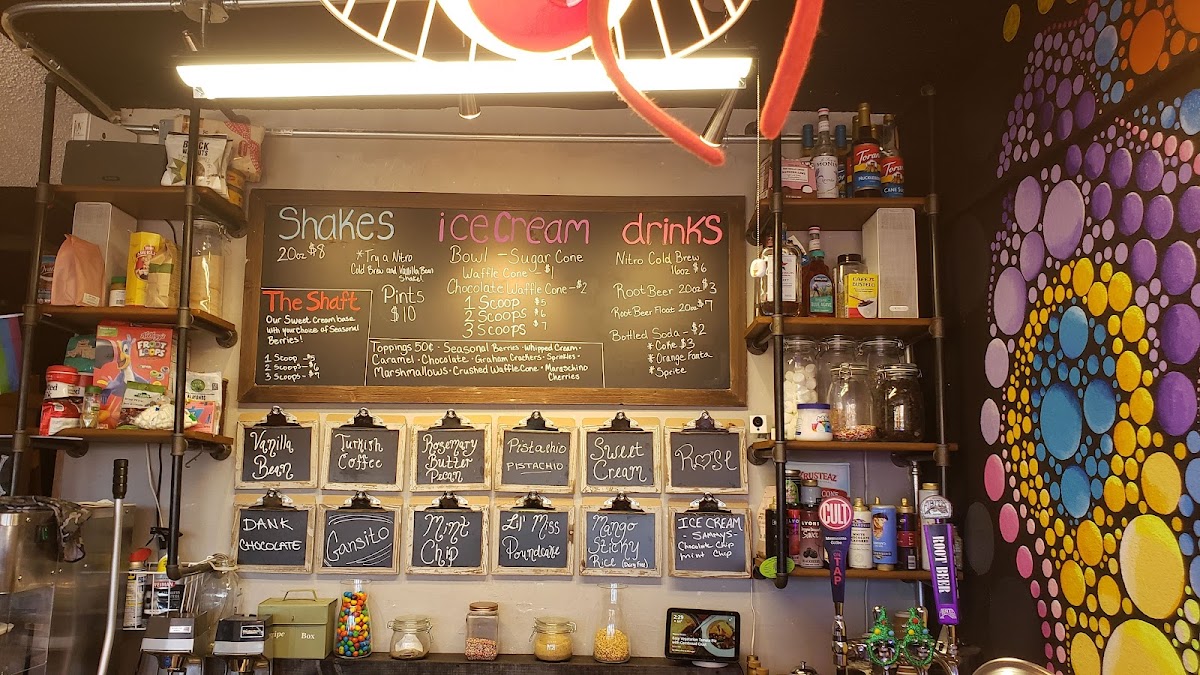 Shakes
20oz $8
*Try a Nitro
Cold Brew and Vanilla Bean
Shake!
Pints
$10
The Shaft
Our Sweet Cream base
with your choice of Seasonal
Berries!
1 Scoop - $5
2 Scoops - $6
3 Scoops - $7
ice cream
Bowl - Sugar Cone
Waffle Cone - $1
Chocolate Waffle Cone - $2
1 Scoop $5
2 Scoops $6
3 Scoops $7
Toppings 50¢ · Seasonal Berries · Whipped Cream ·
Caramel · Chocolate · Graham Crackers · Sprinkles ·
Marshmallows · Crushed Waffle Cone · Maraschino
Cherries
drinks
Nitro Cold Brew
16oz $6
Root Beer 20oz $3
Root Beer Float 20oz $7
Bottled Soda - $2
* Coke $3
* Orange Fanta
* Sprite
Vanilla
Bean
Turkish
Coffee
Rosemary
Butter
Pecan
Pistachio
PISTACHIO
Sweet
Cream
ROSE
DANK
CHOCOLATE
Gansito
Mint
Chip
Lil' Miss
Poundcake
Mango
Sticky
Rice (Dairy Free)
ICE CREAM
- SAMMYS -
Chocolate Chip
Mint Chip
FROOT
LOOPS
Torani
Torani
CAFE
BUSTELO
KRUSTEAZ
LYONS
CULT
TAP
ROOT BEER
2:29
Box